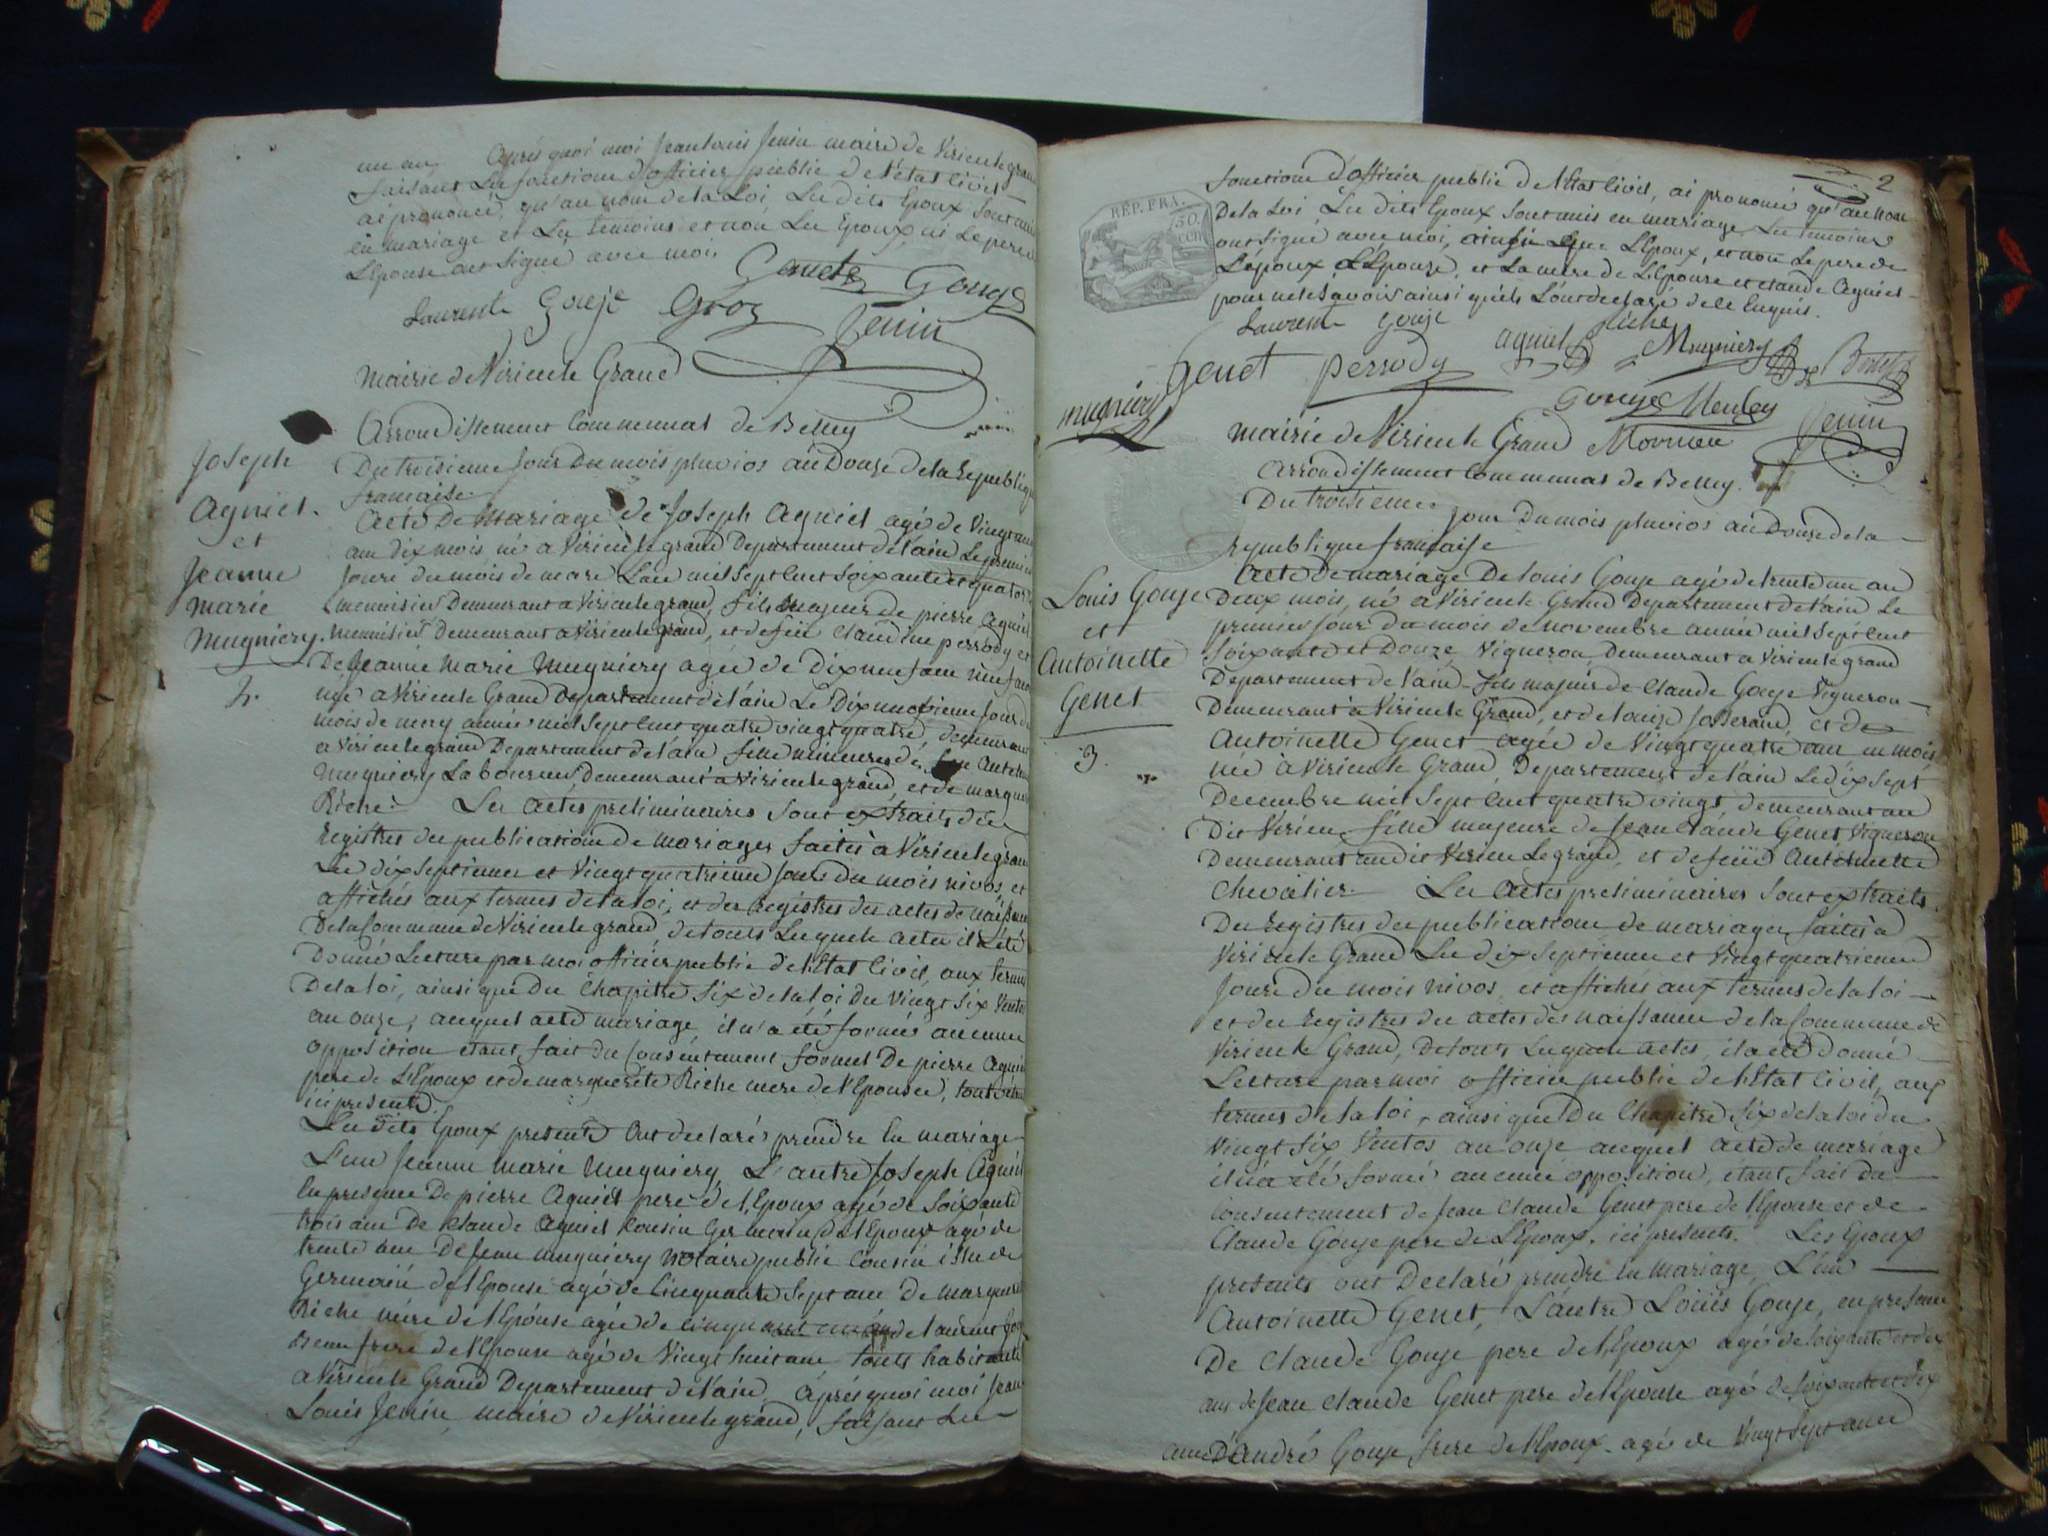 un an. Après quoi moi Jean Louis Jenin maire de Virieu le grand
faisant les fonctions d'officier public de l'état civil
ai prononcé, qu'au nom de la Loi, Les dits Epoux sont unis
en mariage et Les temoins et non Les Epoux, ni Le pere de
L'Epouse ont signé avec moi
Genets Gouge
Laurent Gouje Groz Jenin
Mairie de Virieu le Grand
Arrondissement Communal de Belley
Du troisieme Jour Du mois pluvios an Douze de la republique
francaise
Joseph
Agniel
et
Jeanne
Marie
Mugniery.
2.
Acte De Mariage de Joseph Agniel agé de Vingt neuf
ans dix mois né a Virieu le grand Departement de l'ain Le premier
Jour du mois de mars L'an mil sept cent soixante et quatorze
menuisier Demeurant a Virieu le grand, fils majeur de pierre Agniel
menuisier Demeurant a Virieu le grand, et de feue Claudine perrody et
De Jeanne Marie Mugniery agée de Dix neuf ans neuf mois
née a Virieu le Grand Departement de l'ain Le Dix neuvieme Jour du
mois de mars année mil sept cent quatre vingt quatre, demeurant
a Virieu le grand Departement de l'ain fille mineure de feu Antoine
Mugniery Laboureur, Demeurant a Virieu le grand, et de marguerite
Riche. Les actes preliminaires sont extraits des
registres des publications de mariages faites à Virieu le grand
Les dix septieme et Vingt quatrieme Jours du mois nivos, et
affichés aux termes de la loi, et des registres des actes de naissance
De la Commune de Virieu le grand, de touts Lesquels actes il a été
Donné Lecture par moi officier public de l'Etat Civil, aux termes
De la loi, ainsi que du Chapitre Six de la loi du Vingt six Ventos
an onze, auquel acte mariage il n'a été formé aucune
opposition etant fait du Consentement formel De pierre Agniel
pere de L'Epoux et de marguerite Riche mere de l'Epouse, touts deux
ici presents.
Les dits Epoux presents Ont declaré prendre en mariage
L'un Jeanne Marie Mugniery, L'autre Joseph Agniel
En presence De pierre Agniel pere de L'Epoux agé de soixante
trois ans De Claude Agniel Cousin Germain de L'Epoux agé de
trente ans De Jean Mugniery Notaire public Cousin issu de
Germain de l'Epouse agé de Cinquante Sept ans De marguerite
Riche mère de l'Epouse agée de cinquante ans de Laurent Gouje
Beau frere de l'Epouse agé de Vingt huit ans touts habitants
a Virieu le Grand Departement de l'ain, Après quoi moi Jean
Louis Jenin, maire de Virieu le grand, faisant les
2
REP. FRA.
50.
CEN
fonctions d'officier public de l'Etat Civil, ai prononcé qu'au nom
De la Loi, Les dits Epoux sont unis en mariage, Les temoins
ont signé avec moi, ainsi que L'Epoux, et non Le pere de
L'époux L'Epouse, et La mere de L'Epouse et Claude Agniel
pour ne le savoir ainsi qu'ils L'ont declaré de ce Enquis.
Laurent Gouje agniel Riche
Genet perrody Mugniery Bertet
mugniery Gouye
Jenin
Mairie de Virieu le Grand
Arrondissement Communal de Belley.
Du troisieme Jour Du mois pluvios an Douze de la
republique francaise
Louis Gouje
et
Antoinette
Genet
3.
Acte De mariage De Louis Gouje agé de trente un an
Deux mois, né a Virieu le Grand Departement de l'ain Le
premier Jour du mois de Novembre année mil sept cent
Soixante et Douze Vigneron, Demeurant a Virieu le grand
Departement de l'ain – fils majeur de Claude Gouje Vigneron
Demeurant à Virieu le Grand, et de Louise Josserand, et de
Antoinette Genet agée de Vingt quatre ans un mois
née à Virieu le Grand Departement de l'ain Le dix sept
Decembre mil Sept Cent quatre vingt demeurant au
Dit Virieu, fille majeure de Jean Claude Genet, Vigneron
Demeurant au dit Virieu Le grand, et de feüe Antoinette
Chevalier. Les actes preliminaires sont extraits
Des registres des publications de mariages faites à
Virieu le Grand Les dix septieme et Vingt quatrieme
Jours du mois nivos, et affichés aux termes de la loi
et des registres des actes de naissance de la Commune de
Virieu le Grand, De touts Lesquels actes, il a été donné
Lecture par moi officier public de l'Etat Civil, aux
termes de la loi, ainsi que du Chapitre Six de la loi du
Vingt six Ventos an onze auquel acte de mariage
il n'a été formé aucune opposition, étant fait du
Consentement de Jean Claude Genet pere de l'Epouse et de
Claude Gouje pere de L'Epoux, ici presents. Les Epoux
presents ont Declaré prendre en mariage, L'un
Antoinette Genet, L'autre Louis Gouje, en presence
De Claude Gouje pere de l'Epoux agé de soixante et dix
ans de Jean Claude Genet pere de l'Epouse agé de soixante et dix
ans D'André Gouje frere de l'Epoux agé de Vingt Sept ans